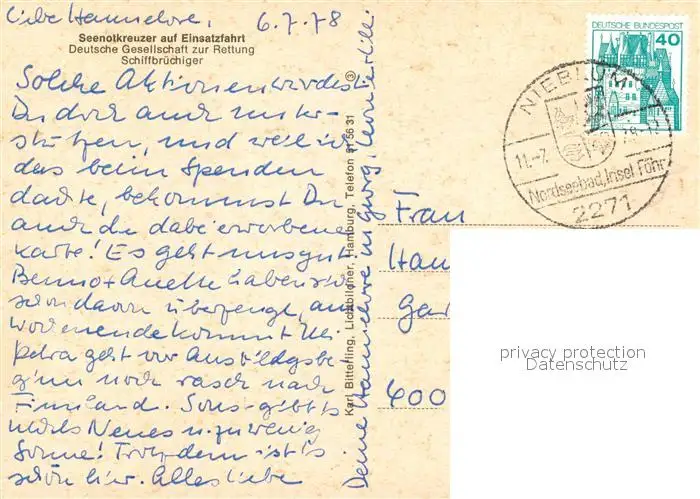 Liebe Hannelore, 6.7.78
Seenotkreuzer auf Einsatzfahrt
Deutsche Gesellschaft zur Rettung
Schiffbrüchiger
Solche Aktionen würdest
Du doch auch unter-
stützen, und weil ich
das beim Spenden
dachte, bekommst Du
auch die dabei erworbene
Karte! Es geht uns gut
Benno + Anette haben sich
schon davon überzeugt, am
Wochenende kommt Uli
Petra geht vor Ausbildgsbe
ginn noch rasch nach
Finnland. Sons gibt's
nichts Neues u. zu wenig
Sonne! Trotzdem ist's
schön hier. Alles Liebe
Deine Hannelore m. Georg,
Karl Bitterling, Lichtbildner, Hamburg, Telefon 81 56 31 ③
DEUTSCHE BUNDESPOST
40
NIEBLUM
11.-7.
Nordseebad, Insel Föhr
2271
Frau
Han
Gar
400
privacy protection
Datenschutz